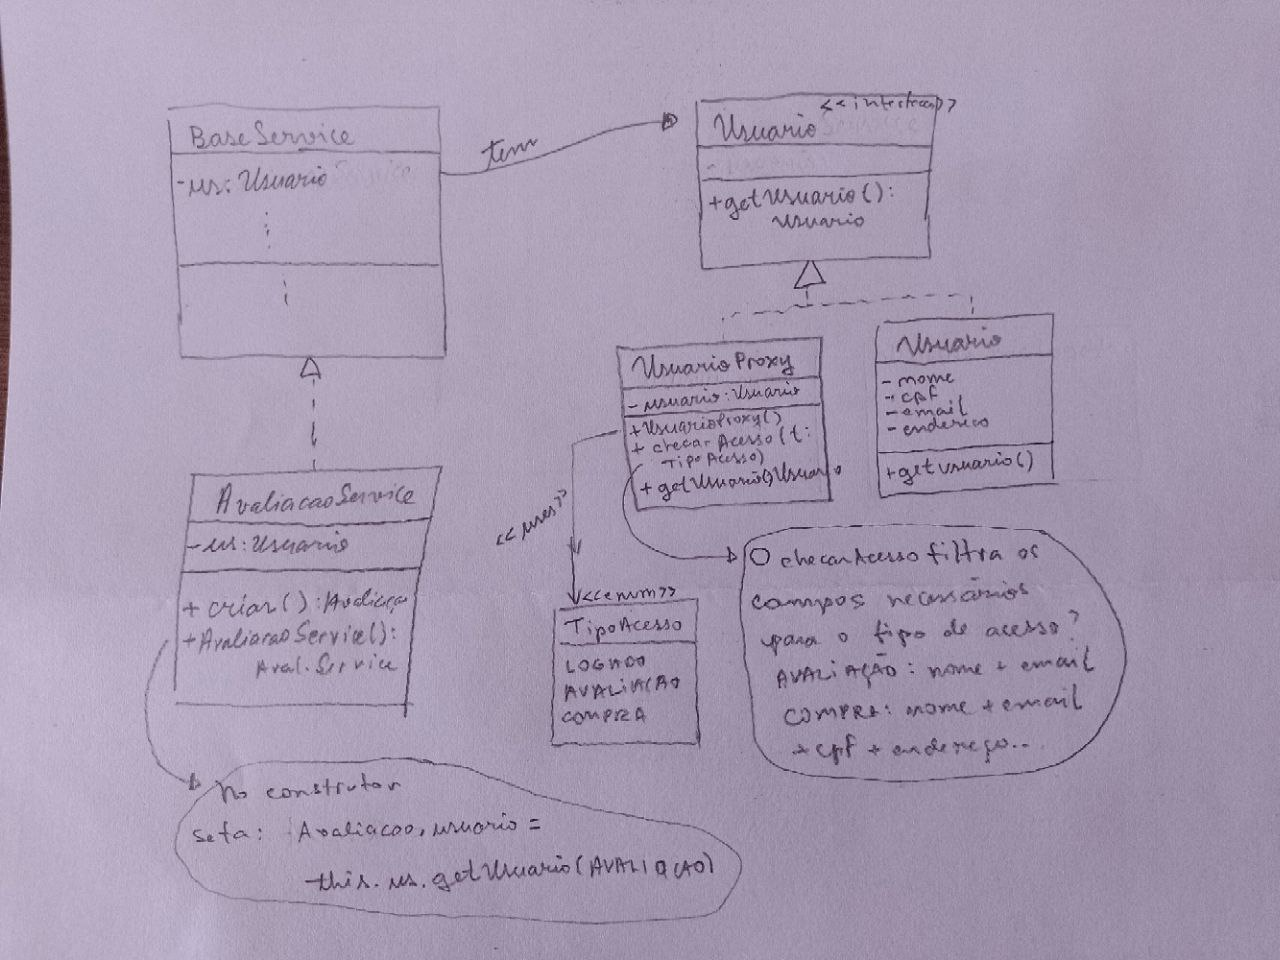 BaseService
- us: Usuario
tem
<<interface>>
Usuario
-
+ getUsuario():
Usuario
UsuarioProxy
- usuario: Usuario
+ UsuarioProxy()
+ checarAcesso(t:
TipoAcesso)
+ getUsuario():Usuario
Usuario
- nome
- cpf
- email
- endereco
+ getusuario()
AvaliacaoService
- us: Usuario
+ criar(): Avaliaçao
+ AvaliacaoService():
Aval.Service
<<uses>>
<<enum>>
TipoAcesso
LOGADO
AVALIACAO
COMPRA
O checarAcesso filtra os
campos necessários
para o tipo de acesso?
AVALIAÇÃO: nome + email
COMPRA: nome + email
+ cpf + endereço...
No construtor
seta: Avaliacao.usuario =
this.us.getUsuario(AVALIACAO)